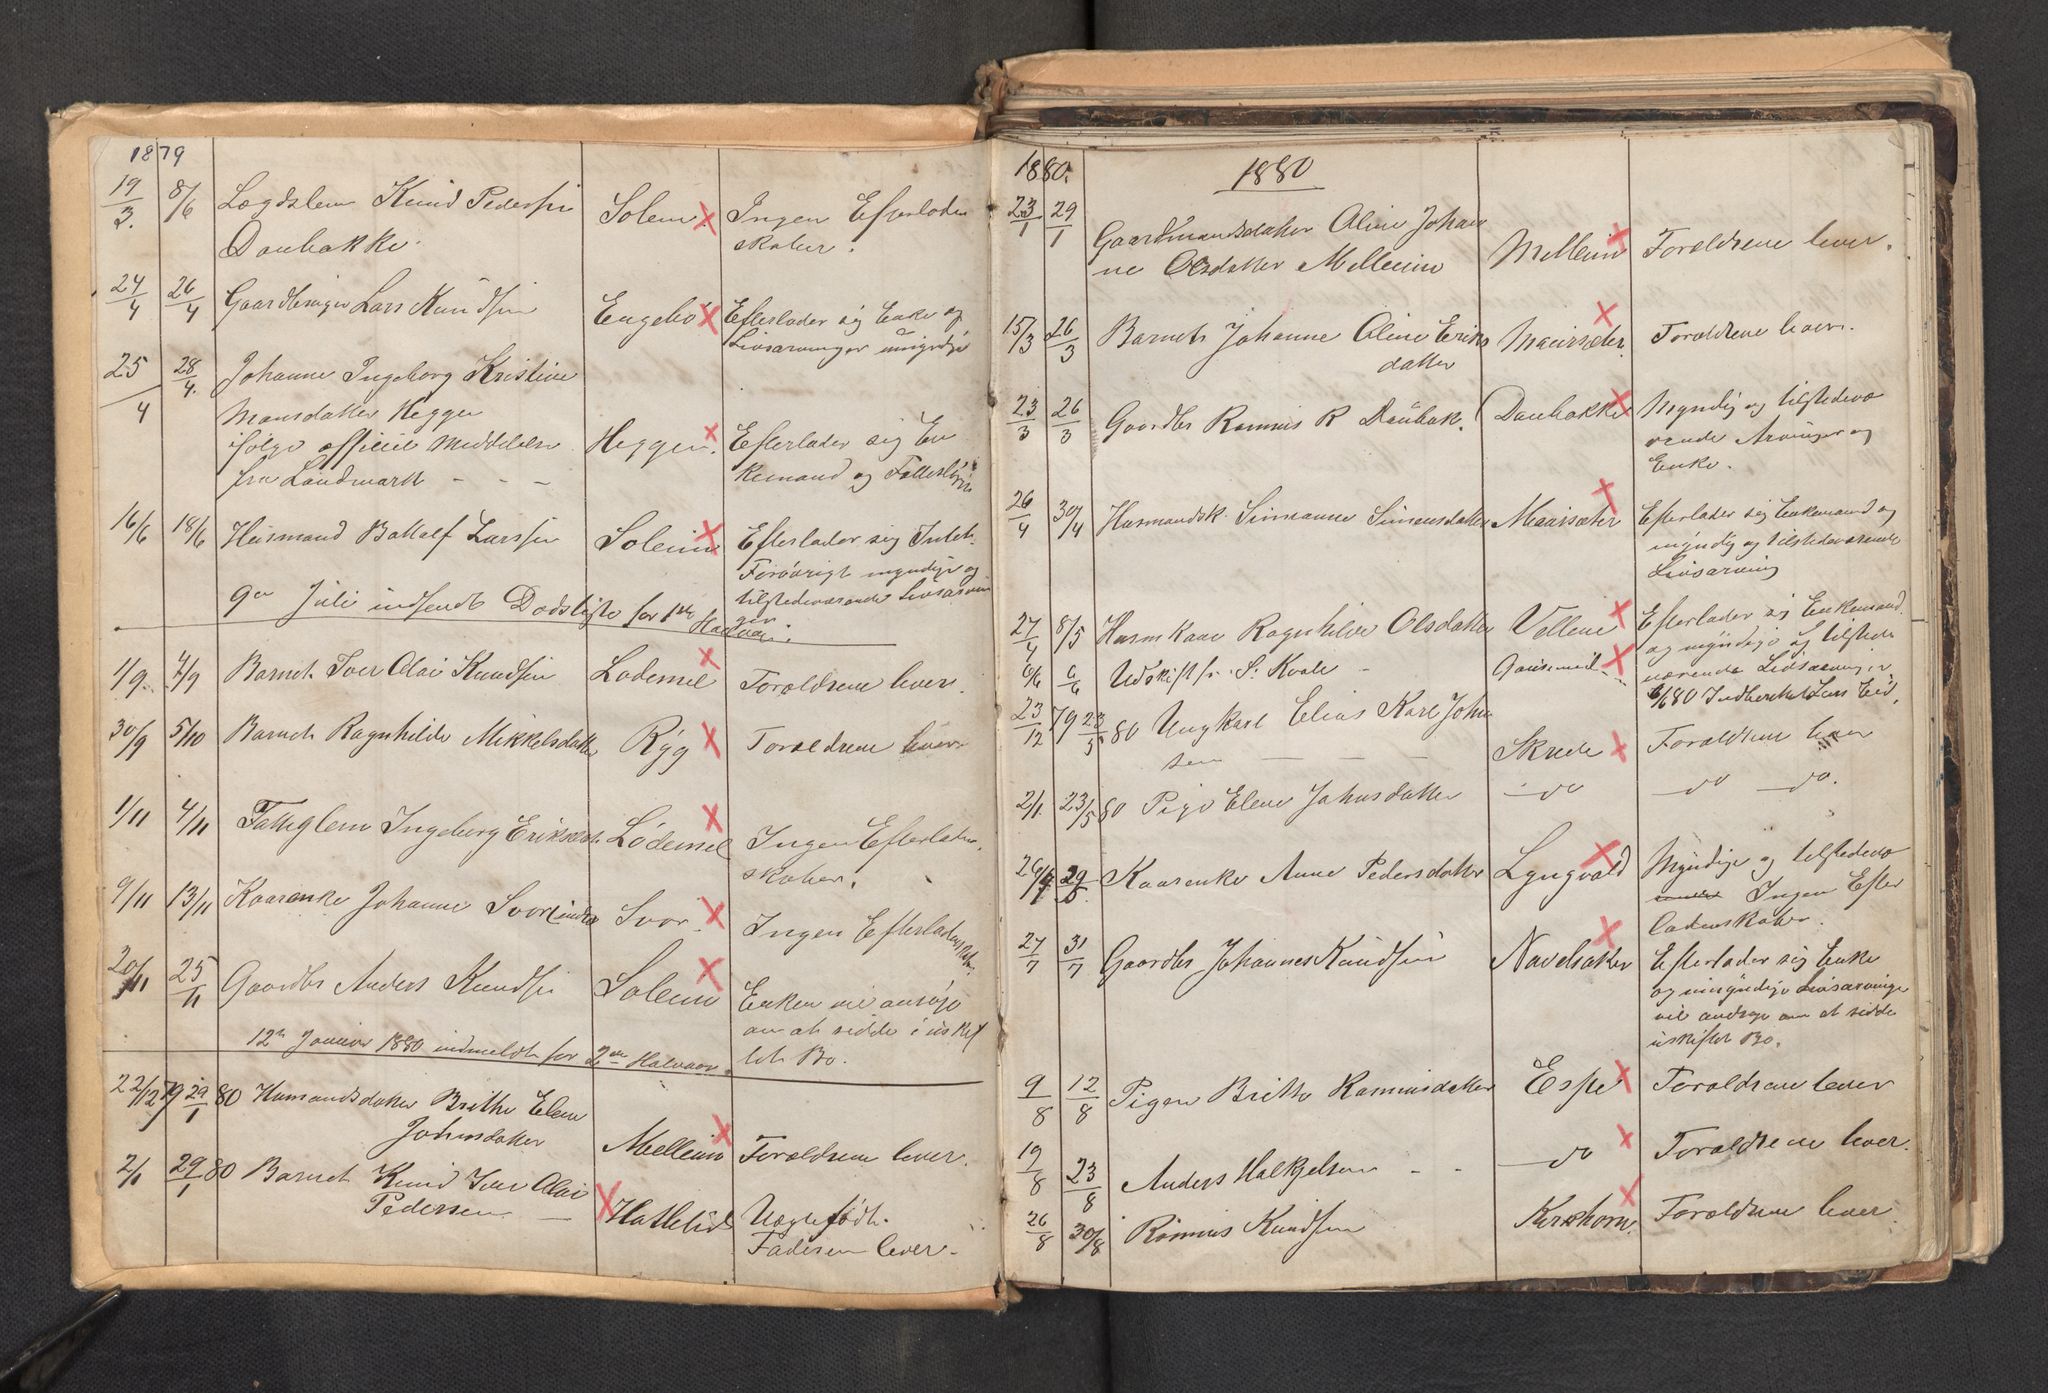 1879
19/3. 8/6 Lægdslem Knud Pedersen Solem Ingen Efterladen
Daubakke. skaber.
24/4 26/4 Gaardbruger Lars Knudsen Engebø Efterlader sig Enke og
Livsarvinger umyndige
25/4 28/4. Johanne Ingeborg Kristine
Monsdatter Hegge
ifølge officiel Meddelelse Heggen. Efterlader sig En
fra Landmark - - - kemand og Fællesbørn
16/6 18/6 Husmand Bottolf Larssen Soleim Efterlader sig Intet.
Forøvrigt myndige og
tilstedeværende Livsarvin
ger
9de Juli indsendt Dødsliste for 1ste Halvaar.
1/9. 4/9 Barnet Iver Olai Knudsen Lødemel Forældrene lever.
30/9 5/10 Barnet Ragnhilde Mikkelsdatter Ryg Forældrene lever
1/11 4/11 Fattiglem Ingeborg Eriksdt. Lødemel Ingen Efterladen.
skaber.
9/11 13/11 Kaarenke Johanne Svor Svor. Ingen Efterladenskaber.
20/11 25/11 Gaardbr Anders Knudsen Soleim Enken vil ansøge
om at sidde i uskif
tet Bo.
12te Januar 1880 indmeldt for 2det Halvaar.
22/12 79 29/1 80 Husmandsdatter Brithe Elene
Johnsdatter Melleim Forældrene lever.
2/1 29/1 80 Barnet Knud Iver Olai
Pedersen — Hatlelid Uægtefødt.
Faderen lever.
1880. 1880
23/1 29/1 Gaardmandsdatter Oline Johan
ne Olsdatter Melleim Melleim Forældrene lever.
15/3 26/3 Barnet Johanne Oline Eriks
datter Maursæter. Forældrene lever.
23/3 26/3 Gaardbr Rasmus R Daubak. Daubakke Myndig og tilstedevæ
rende Arvinger og
Enke.
26/4 30/4 Husmandsk. Simanne Simensdatter Maursæter Efterlader sig Enkemand og
myndig og tilstedeværende
Livsarving
27/4 8/5 Husmkone Ragnhilde Olsdatter Velleim Efterlader sig Enkemand.
og myndige og tilstede
6/6 6/6 Udskift fr. S. Kvale - værende Livsarvinger
6/6 80 Indberettet Lars Eid.
23/12 79 23/5 80 Ungkarl Elias Karl John
sen — — — Skrede Forældrene lever
2/1 23/5 80 Pige Elene Johnsdatter - do - do - do.
29/5 Kaarenke Anne Pedersdatter Lyngvold Myndige og tilstedevæ
Ingen Efter
ladenskaber.
27/7 31/7 Gaardbr Johannes Knudsen Navelsaker Efterlader sig Enke
og umyndige Livsarvinger
vil andrage om at sidde
i uskiftet Bo.
9/8 12/8 Pigen Britte Rasmusdatter Espe Forældrene lever
19/8 23/8 Anders Halkjelsen - - - do Forældrene lever.
26/8 30/8 Rasmus Knudsen Kirkhorn. Forældrene lever.